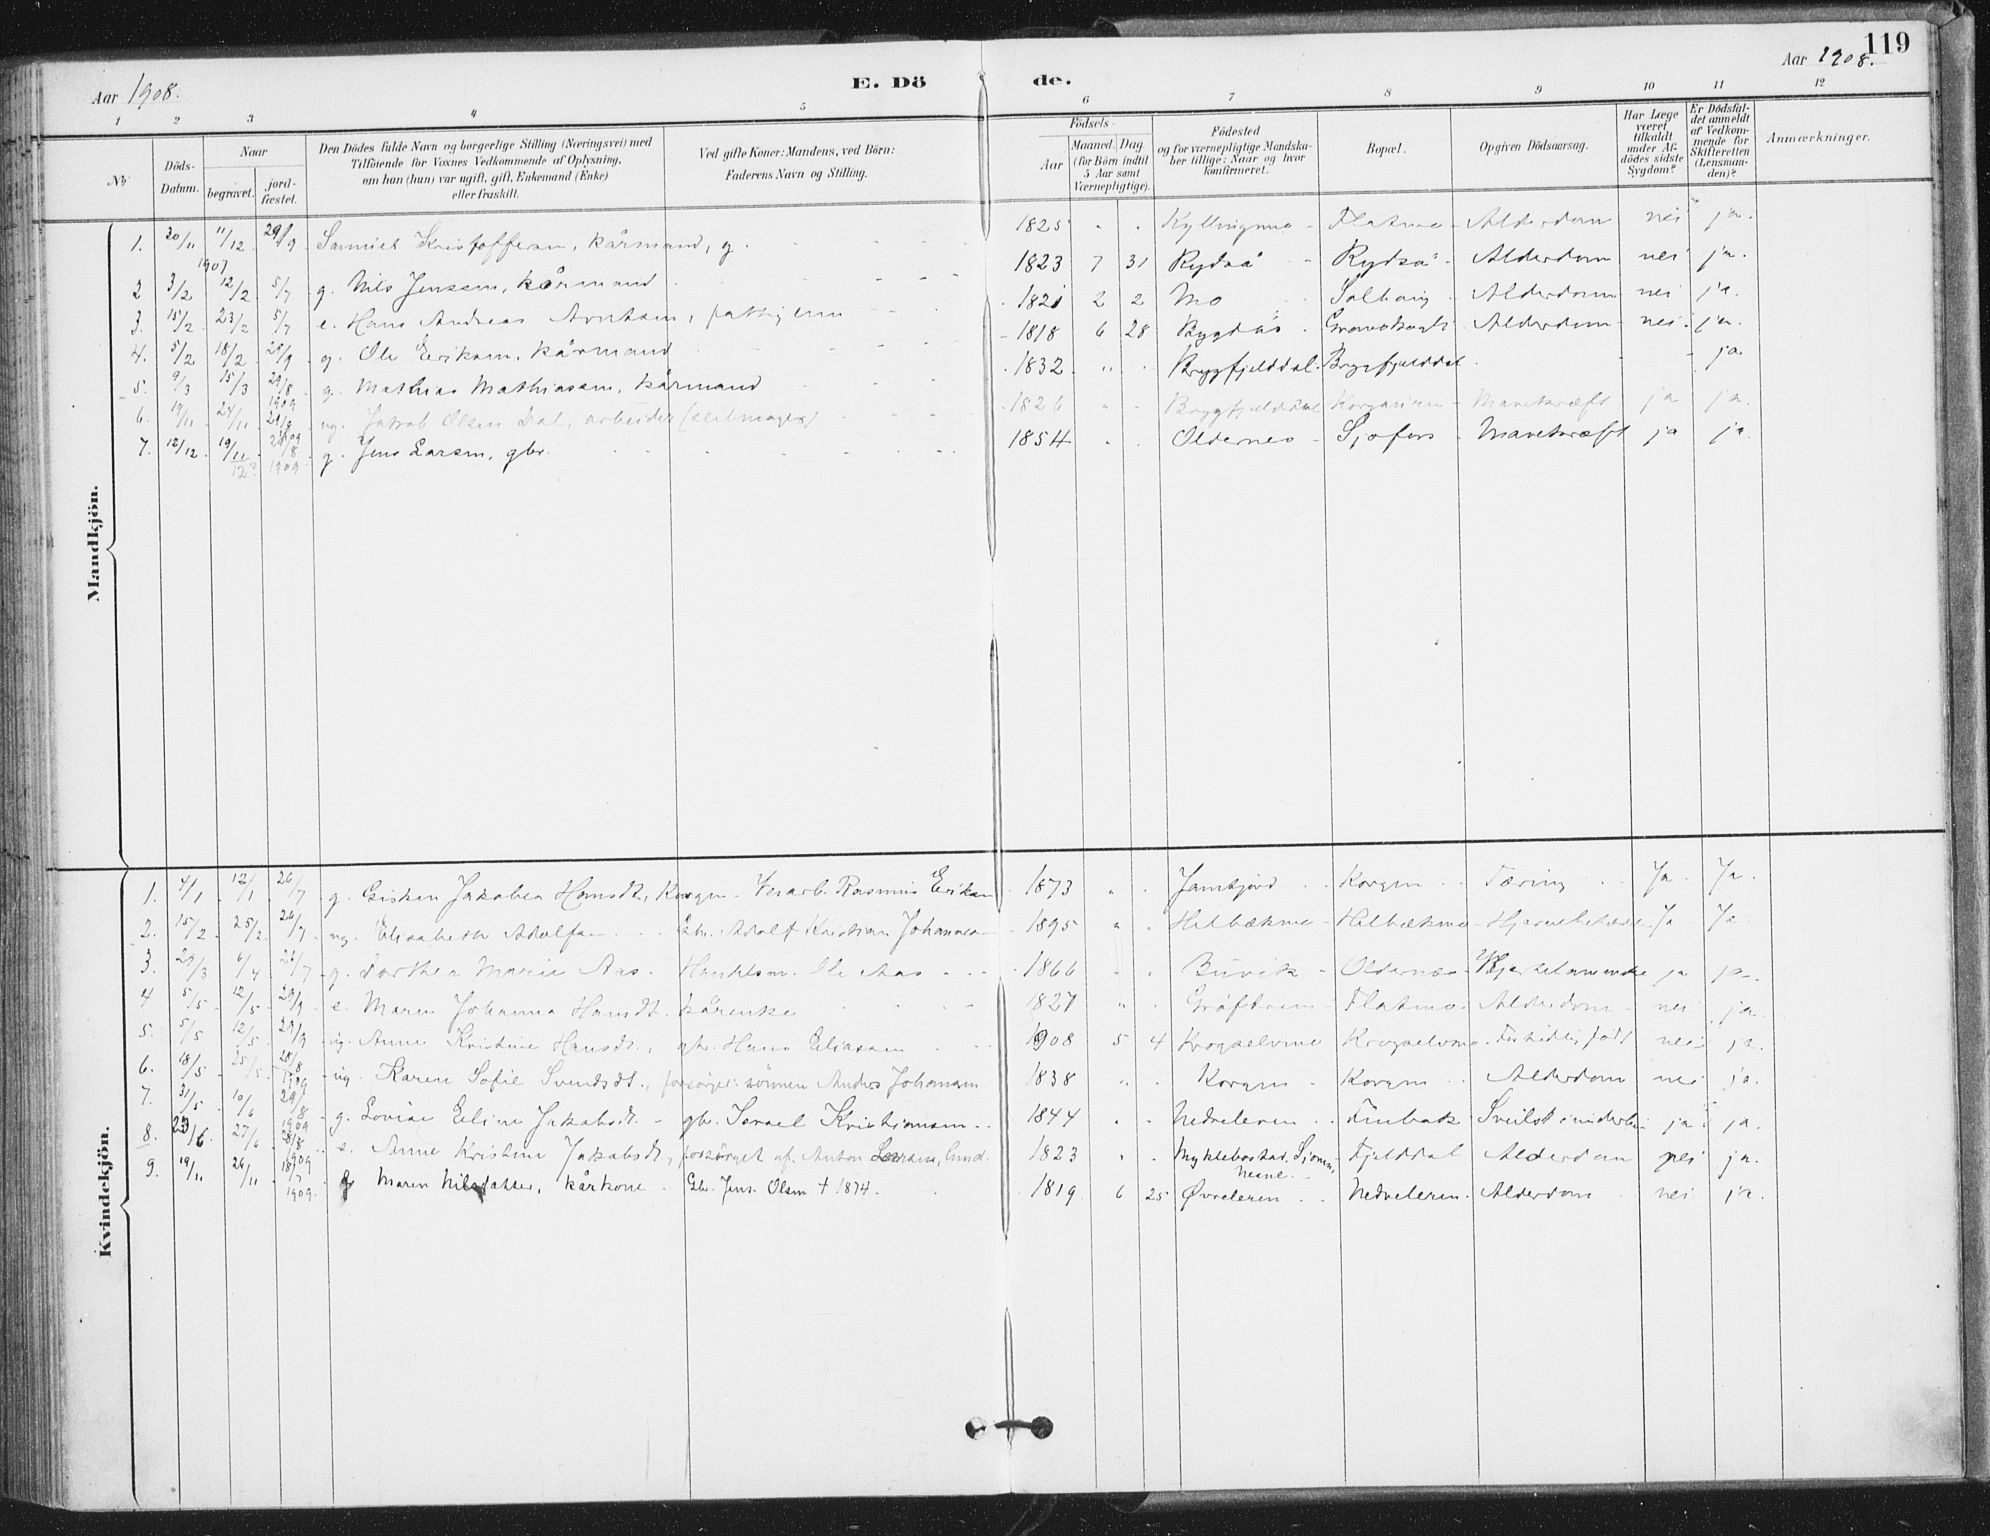 119
Aar 1908. E. Dö de. Aar 1908.
1 2 3 4 5 6 7 8 9 10 11 12
No
Döds-Datum.
Naar
begravet.
jord-fæstet.
Den Dödes fulde Navn og borgerlige Stilling (Næringsvei) med
Tilföiende for Voxnes Vedkommende af Oplysning,
om han (hun) var ugift, gift, Enkemand (Enke)
eller fraskilt.
Ved gifte Koner: Mandens, ved Börn:
Faderens Navn og Stilling.
Födsels-
Aar
Maaned. Dag.
(for Börn indtil
5 Aar samt
Værnepligtige).
Födested
og for værnepligtige Mandska-
ber tillige: Naar og hvor
konfirmeret.
Bopæl.
Opgiven Dödsaarsag.
Har Læge
været
tilkaldt
under Af-
dödes sidste
Sygdom?
Er Dödsfal-
det anmeldt
af Vedkom-
mende for
Skifteretten
(Lensman-
den)?
Anmærkninger.
Mandkjön.
1. 20/11 1907 11/12 29/9 Kristoffersen, kårmand, g. 1825 Kyllingmo Flatmo Alderdom nei ja.
2 3/2 12/2 5/7 g. Nils Jenssen, kårmand 1823 7 31 Rydså Rydså Alderdom nei ja.
3. 15/2 23/2 5/7 e. Hans Andreas 1821 2 2 Mo Alderdom nei ja.
4. 5/2 18/2 g. Ole Eriksen, kårmand 1818 6 28 Alderdom nei ja.
5. 9/3 15/3 29/8 1909 g. Mathias Mathiassen, kårmand 1832 Bryggfjelddal Bryggfjelddal ja
6. 19/11 24/11 ug. Jakob Olsen Dal, arbeider 1826 Bryggfjelddal Mavekræft ja ja.
7. 12/12 19/11 12? 1909 g. Jens Larsen, gbr. 1854 Oldernes Sjofors Mavekræft ja ja.
Kvindekjön.
1. 4/1 12/1 26/7 g. Gisken Jakobea Hansdt, Korgen Rasmus Eriksen 1873 Jamtjord Korgen Tæring Ja Ja.
2. 15/2 25/2 26/7 ug. Elisabeth Adolfsen Gbr. Adolf Kristian Johannesen 1895 Helbækmo Helbækmo Ja Ja
3. 29/3 6/4 g. Dorthea Marie Aas Ole Aas 1866 Buvik Oldernes ja ja.
4 5/5 12/5 29/9 e. Maren Johanna Hansdt. kårenke 1827 Flatmo Alderdom nei ja.
5. 5/5 12/5 29/9 ug. Anne Kristine Hansdt., gbr. Hans Eliassen 1908 5 4 For tidlig født nei ja.
6. 18/5 25/5 28/8 1909 ug. Karen Sofie Svendsdt., sönnen Anders Johansen 1838 Korgen Korgen Alderdom nei ja.
7. 31/5 10/6 29/8 1909 g. Lovise Eline Jakobsdt. gbr. Israel Kristiansen 1844 Nedreleren Finbak ja ja.
8. 23/6 27/6 28/8 1909 e. Anne Kristine Jakobsdt., forsörget af Anton Larsen, 1823 Myklebostad, Nesne Fjelddal Alderdom nei ja.
9. 19/11 26/11 18/7 1909. g Maren Nilsdatter, kårkone Gbr. Jens Olsen † 1874. 1819 6 25 Øvreleren Nedreleren. Alderdom nei ja.